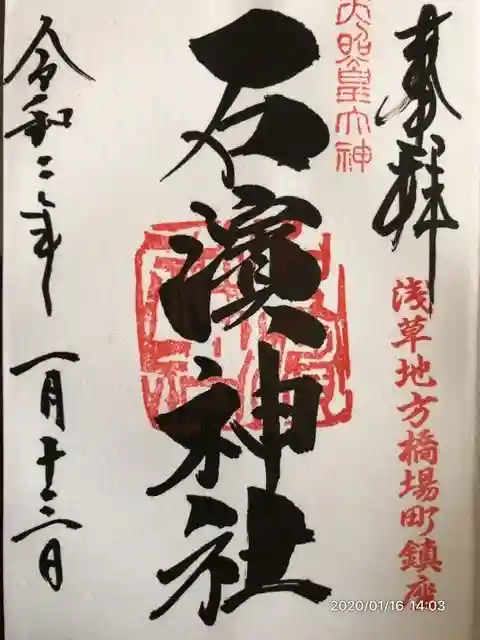 奉拝
浅草地方橋場町鎮座
天照皇大神
石濱神社
令和二年 一月十三日
2020/01/16 14:03